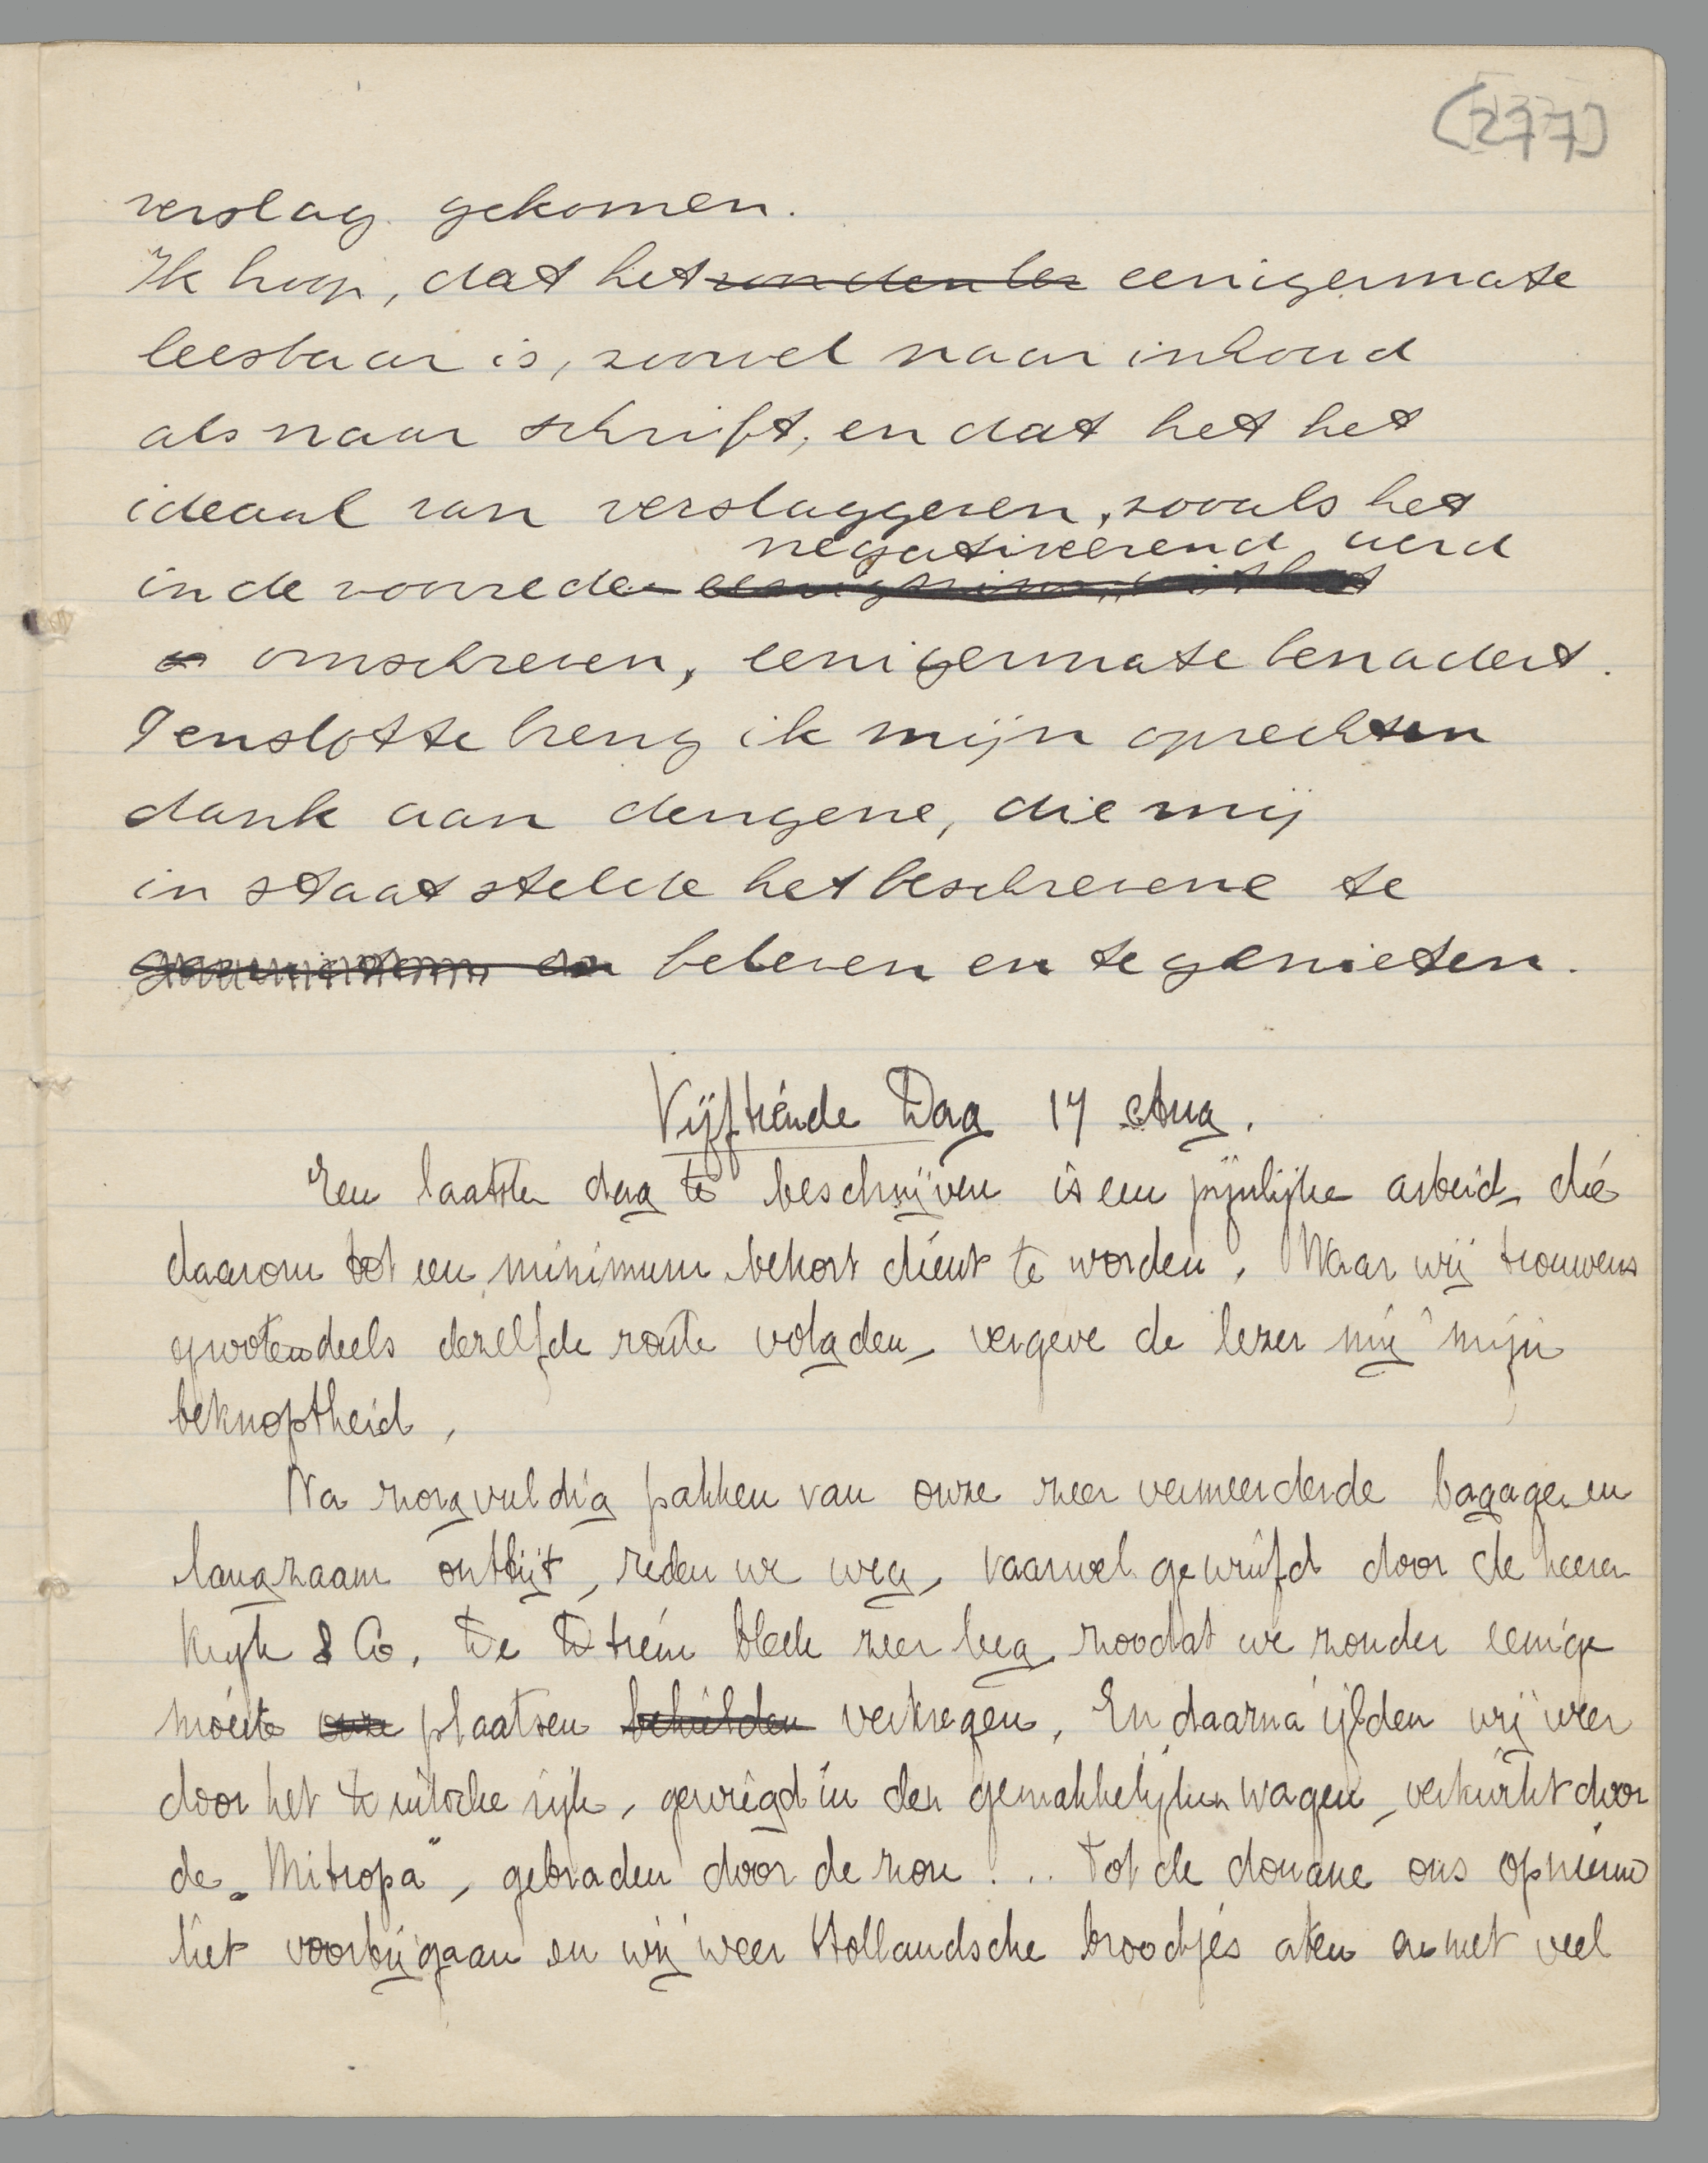 (277)
verslag gekomen.
Ik hoop, dat het eenigermate
leesbaar is, zoowel naar inhoud
als naar schrift, en dat het het
ideaal van verslaggeven, zooals het
negativeerend werd
in de voorrede
omschreven, eenigermate benadert.
Tenslotte breng ik mijn oprechten
dank aan dengene, die mij
in staat stelde het beschrevene te
beleven en te genieten.
Vijftiende Dag 17 Aug.
Een laatste dag te beschrijven is een pijnlijke arbeid, die
daarom tot een minimum bekort dient te worden. Waar wij trouwens
grootendeels dezelfde route volgden, vergeve de lezer mij mijn
beknoptheid.
Na zorgvuldig pakken van onze zeer vermeerderde bagage en
langzaam ontbijt, reden we weg, vaarwel gewuifd door de heeren
Kryk & Co. De D trein bleek zeer leeg zoodat we zonder eenige
moeite onze plaatsen behielden verkregen. En daarna ijlden wij weer
door het Duitsche rijk, gewiegd in den gemakkelijken wagen, verkwikt door
de „Mitropa", gebraden door de zon... Tot de douane ons opnieuw
liet voorbijgaan en wij weer Hollandsche broodjes aten en met veel